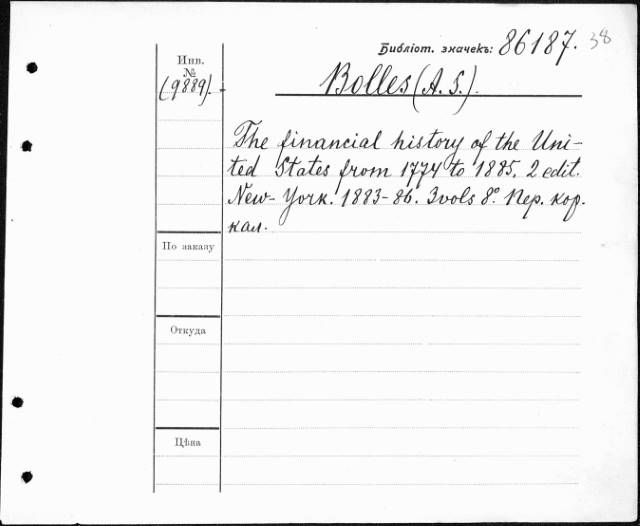 Библіот. значекъ: 86187. 38
Инв.
№
(9889).
Bolles (A. S.).
The financial history of the Uni-
ted States from 1774 to 1885. 2 edit.
New-York. 1883-86. 3 vols 8º. Пер. кор.
кал.
По заказу
Откуда
Цѣна